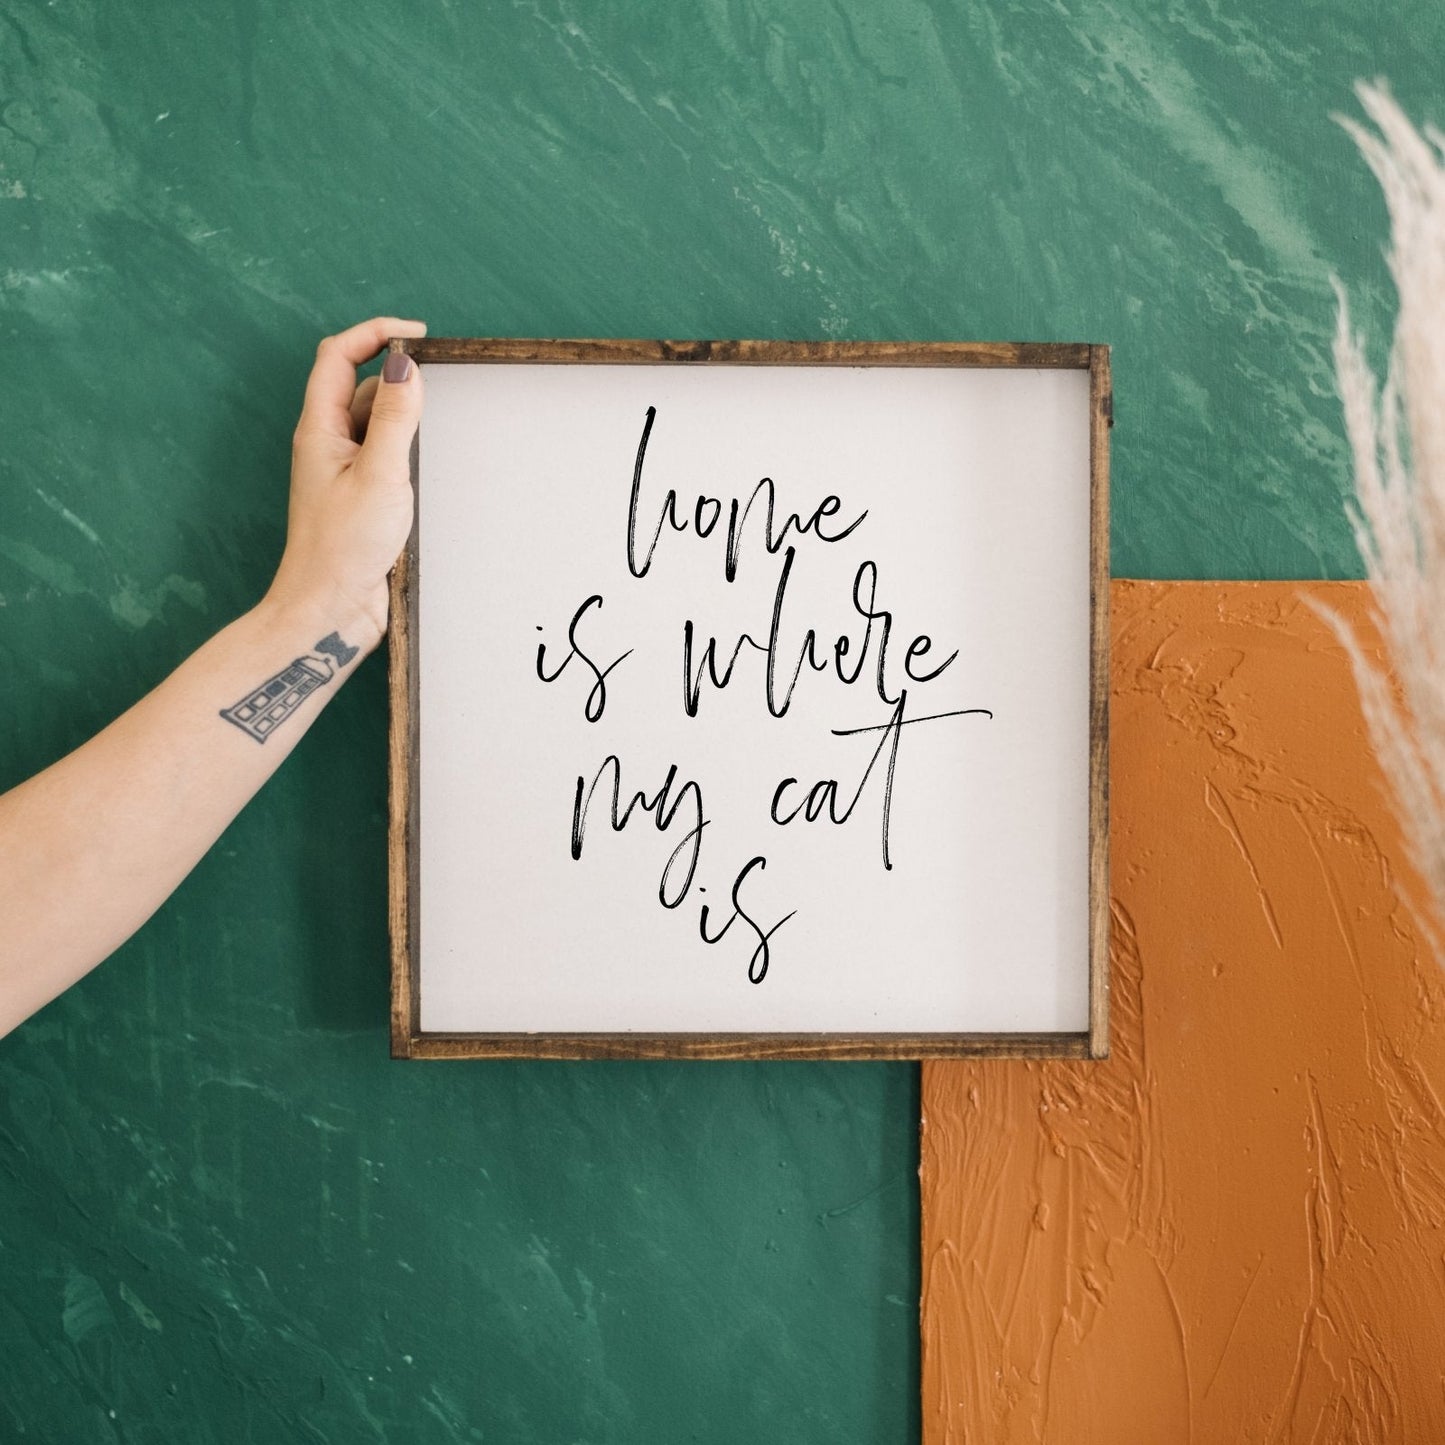 home
is where
my cat
is